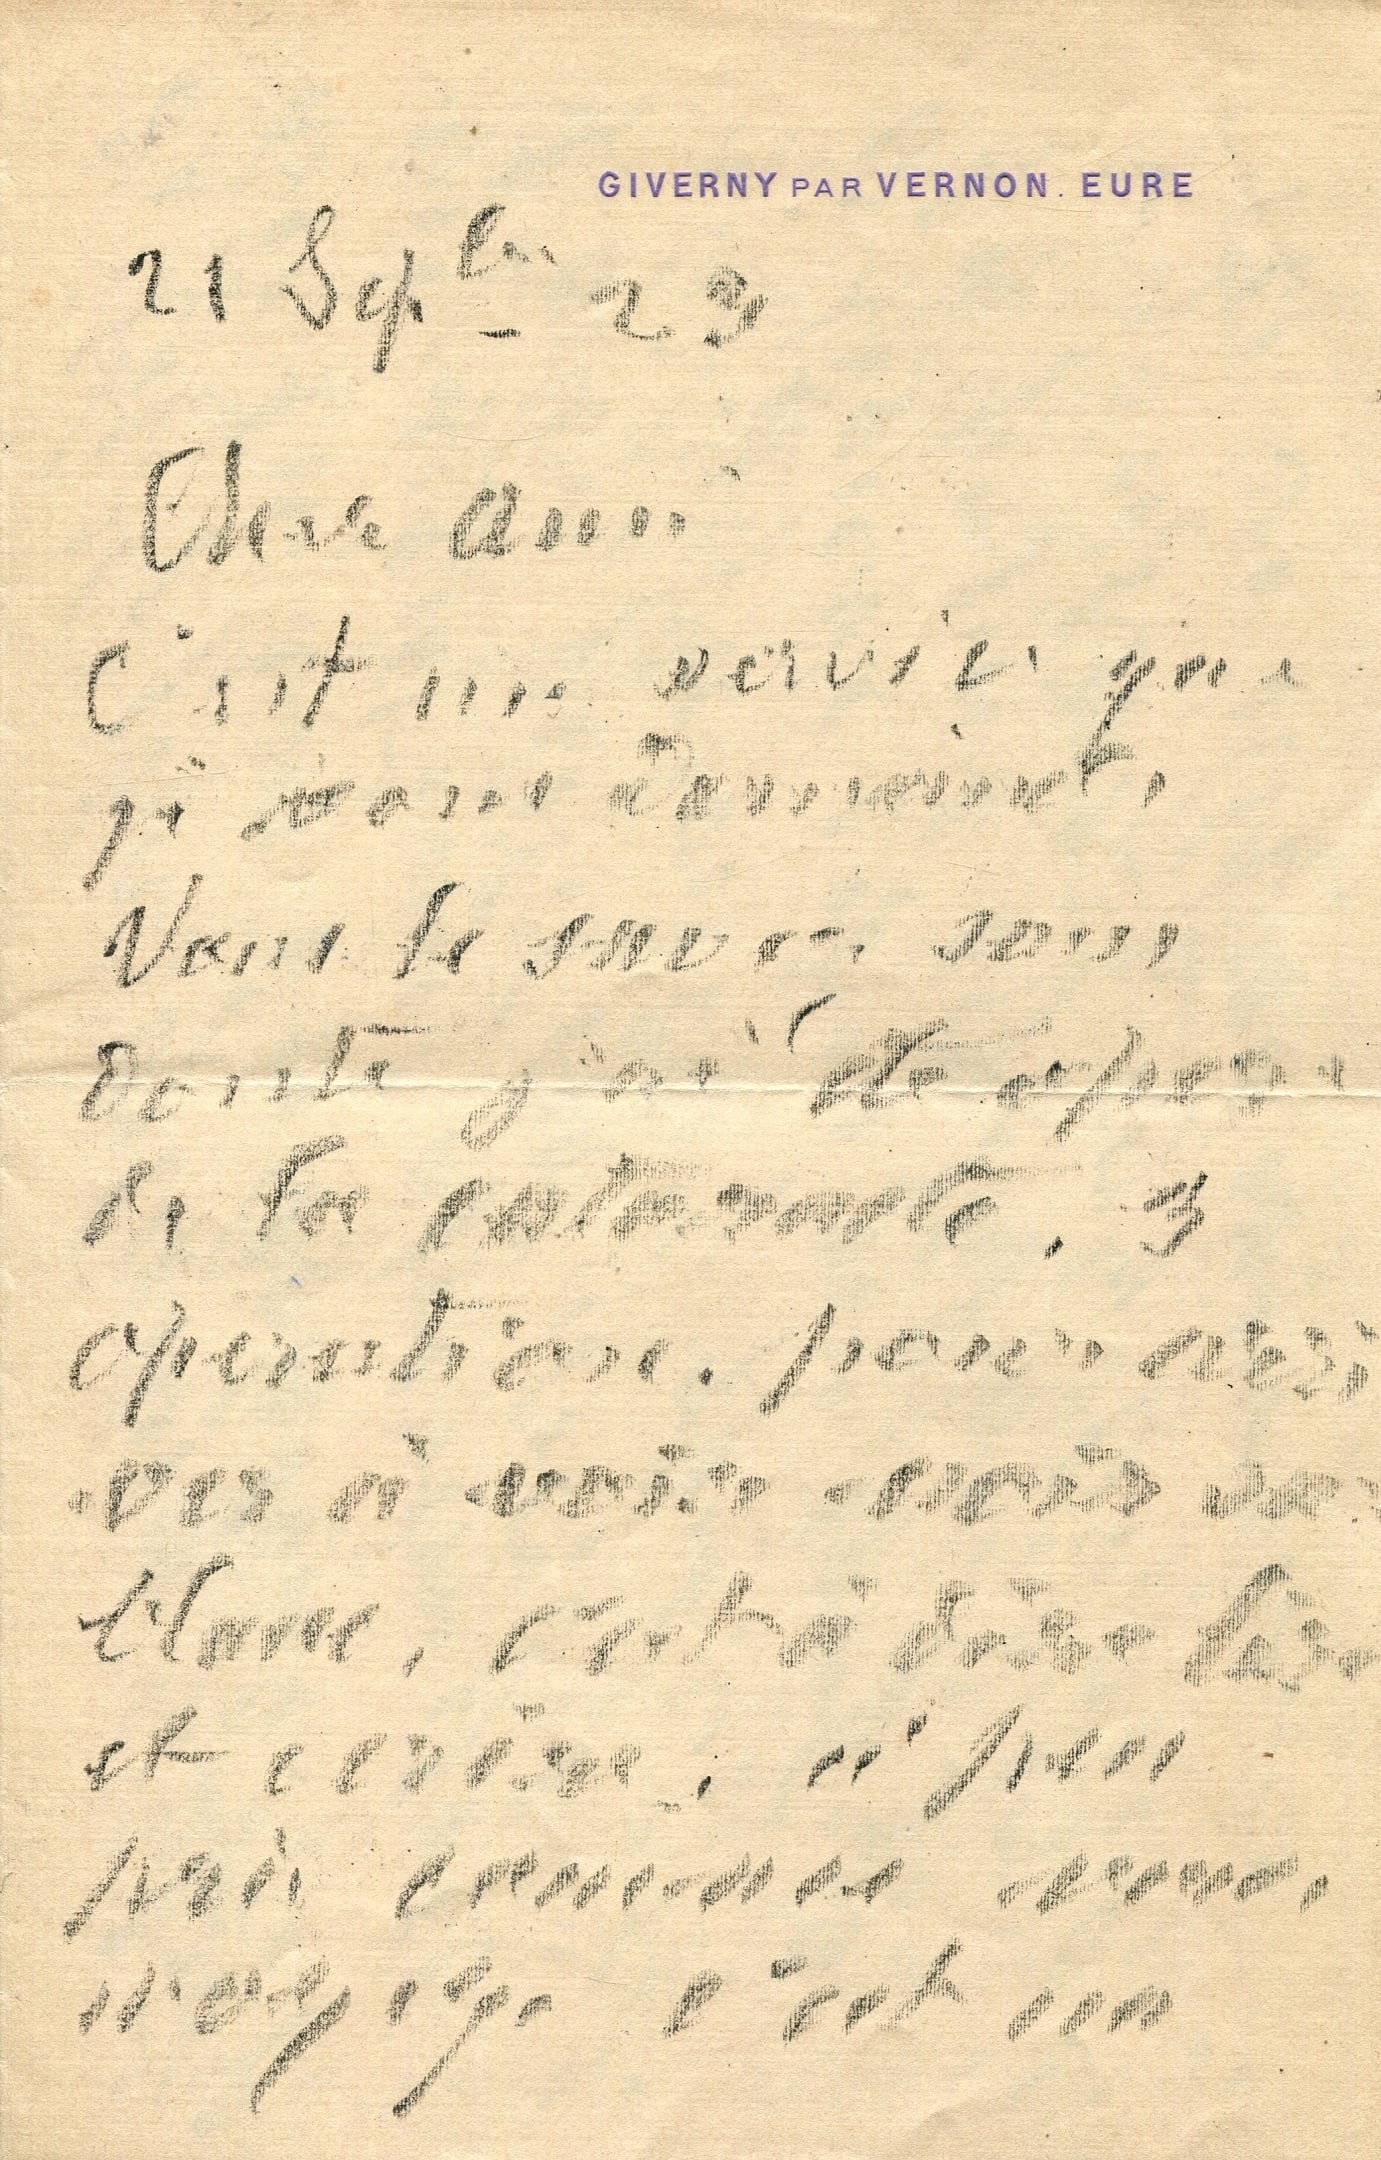 GIVERNY PAR VERNON. EURE
21 Septbre 23
Cher ami
C'est un service que
je vous demande,
Vous le savez sans
doute j'ai été opéré
de la cataracte. 3
opérations. pour arri
ver à voir
et écrire, à peu
près comme vous,
c'est un